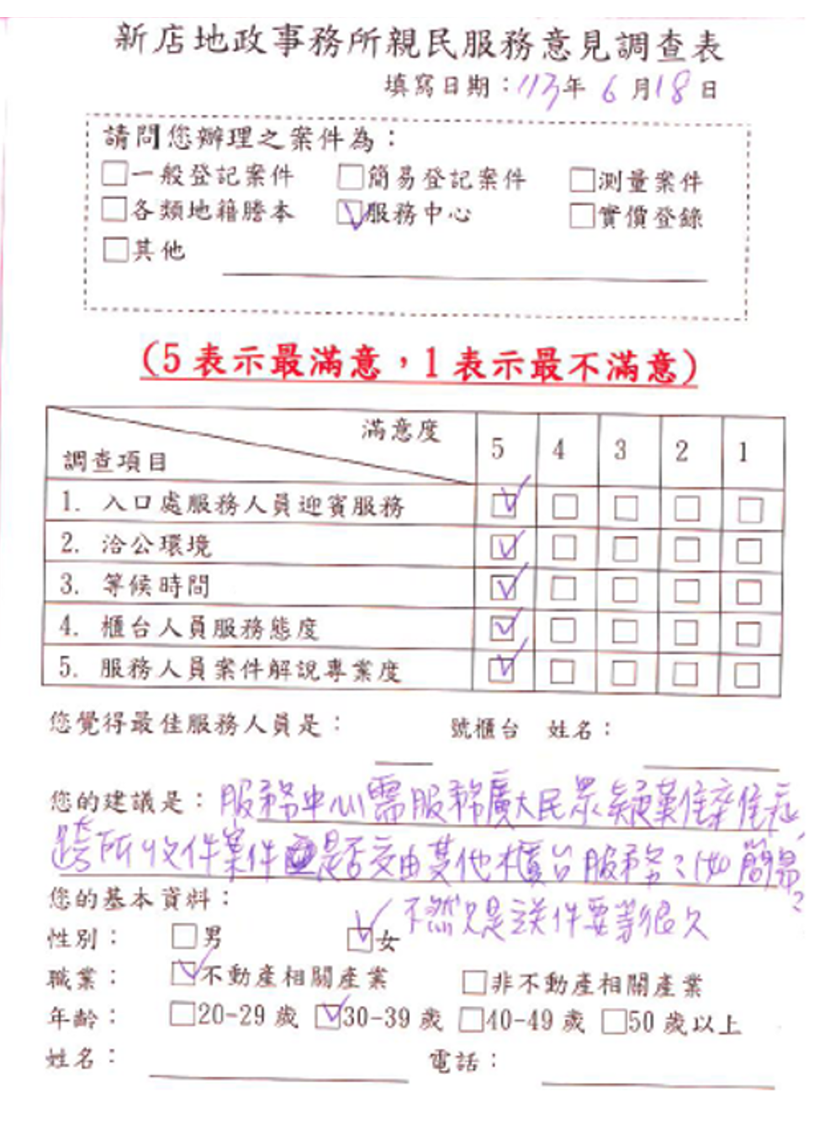 新店地政事務所親民服務意見調查表
填寫日期：113年 6 月 18 日
請問您辦理之案件為：
□一般登記案件 □簡易登記案件 □測量案件
□各類地籍謄本 ☑服務中心 □實價登錄
□其他
(5 表示最滿意，1 表示最不滿意)
滿意度 5 4 3 2 1
調查項目
1. 入口處服務人員迎賓服務 ☑ □ □ □ □
2. 洽公環境 ☑ □ □ □ □
3. 等候時間 ☑ □ □ □ □
4. 櫃台人員服務態度 ☑ □ □ □ □
5. 服務人員案件解說專業度 ☑ □ □ □ □
您覺得最佳服務人員是： 號櫃台 姓名：
您的建議是：服務中心需服務廣大民眾疑難
跨所收件案件是否交由其他櫃台服務？(如 簡易?
您的基本資料：
不然只是送件要等很久
性別： □男 ☑女
職業： ☑不動產相關產業 □非不動產相關產業
年齡： □20-29 歲 ☑30-39 歲 □40-49 歲 □50 歲以上
姓名： 電話：